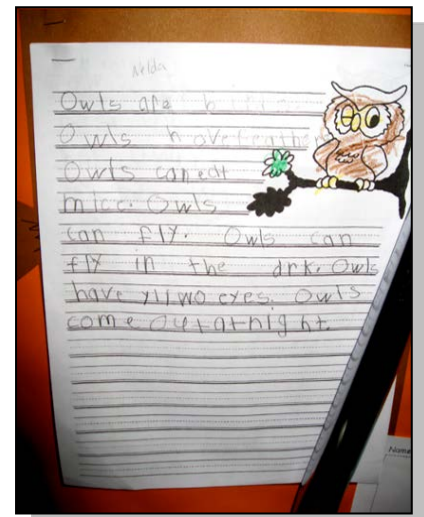 Nelda
Owls are
Owls have feathe
Owls can eat
mice. Owls
can fly. Owls can
fly in the drk. Owls
have yllwo eyes. Owls
come out at night.
Name